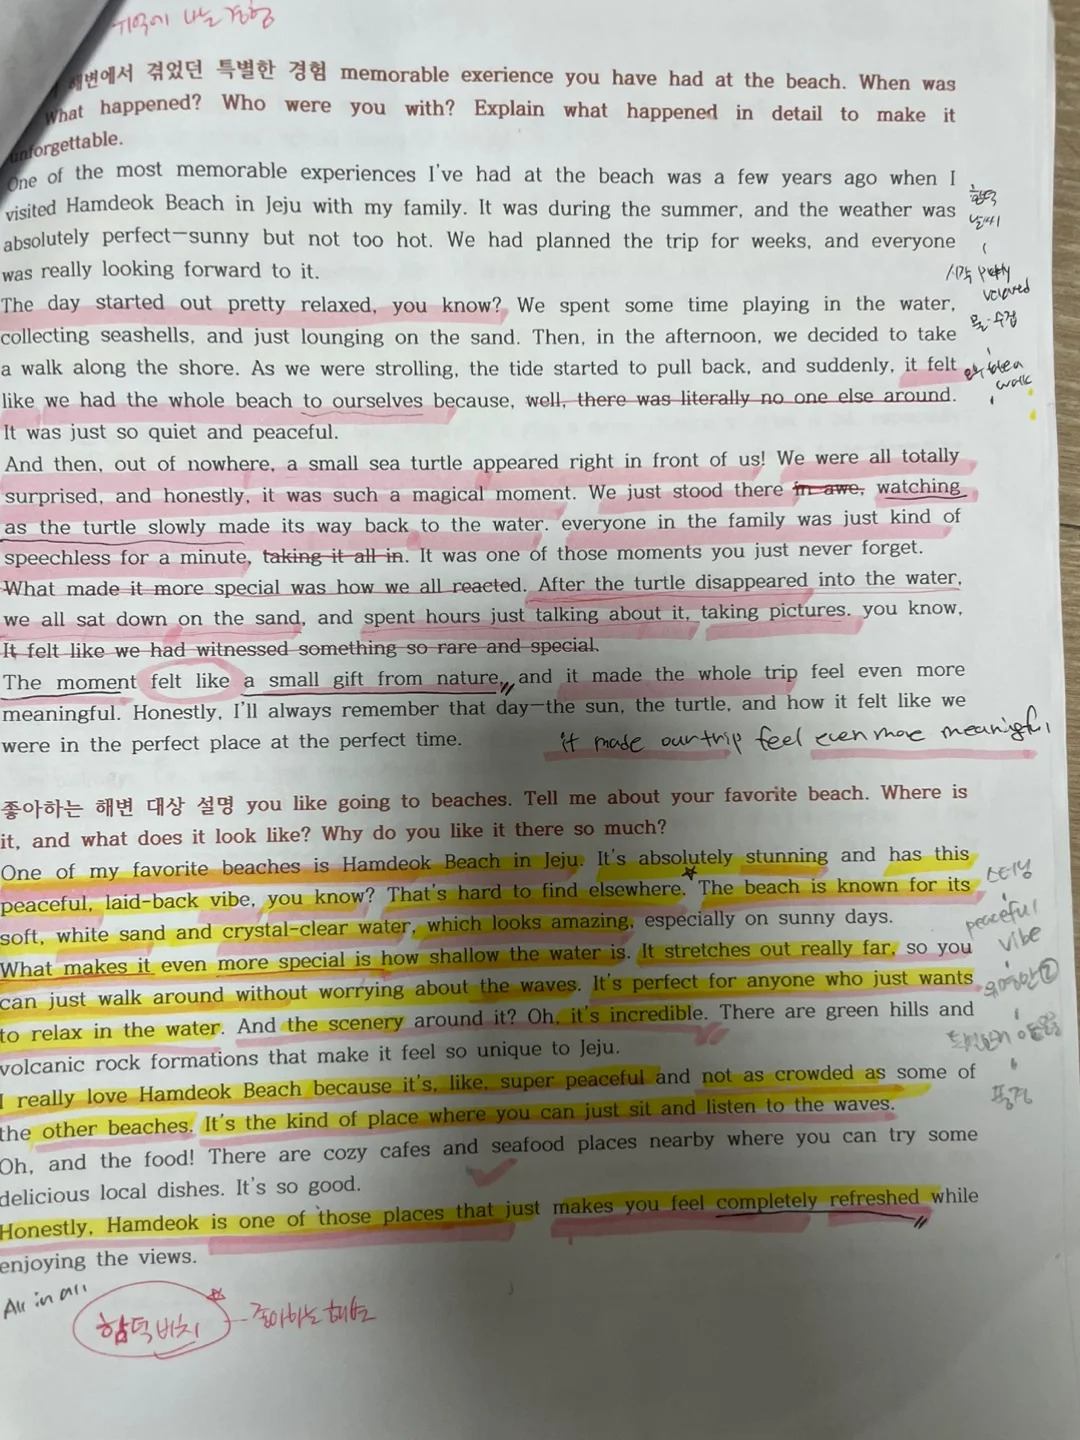 기억에 남는 경험
해변에서 겪었던 특별한 경험 memorable exerience you have had at the beach. When was
What happened? Who were you with? Explain what happened in detail to make it
unforgettable.
One of the most memorable experiences I've had at the beach was a few years ago when I
visited Hamdeok Beach in Jeju with my family. It was during the summer, and the weather was
absolutely perfect—sunny but not too hot. We had planned the trip for weeks, and everyone
was really looking forward to it.
The day started out pretty relaxed, you know? We spent some time playing in the water,
collecting seashells, and just lounging on the sand. Then, in the afternoon, we decided to take
a walk along the shore. As we were strolling, the tide started to pull back, and suddenly, it felt
like we had the whole beach to ourselves because, well, there was literally no one else around.
It was just so quiet and peaceful.
And then, out of nowhere, a small sea turtle appeared right in front of us! We were all totally
surprised, and honestly, it was such a magical moment. We just stood there in awe, watching
as the turtle slowly made its way back to the water. everyone in the family was just kind of
speechless for a minute, taking it all in. It was one of those moments you just never forget.
What made it more special was how we all reacted. After the turtle disappeared into the water,
we all sat down on the sand, and spent hours just talking about it, taking pictures. you know,
It felt like we had witnessed something so rare and special.
The moment felt like a small gift from nature, and it made the whole trip feel even more
meaningful. Honestly, I'll always remember that day—the sun, the turtle, and how it felt like we
were in the perfect place at the perfect time.
it made our trip feel even more meaningful
함덕
날씨
시작
walk
좋아하는 해변 대상 설명 you like going to beaches. Tell me about your favorite beach. Where is
it, and what does it look like? Why do you like it there so much?
One of my favorite beaches is Hamdeok Beach in Jeju. It's absolutely stunning and has this
peaceful, laid-back vibe, you know? That's hard to find elsewhere. The beach is known for its
soft, white sand and crystal-clear water, which looks amazing, especially on sunny days.
What makes it even more special is how shallow the water is. It stretches out really far, so you
can just walk around without worrying about the waves. It's perfect for anyone who just wants
to relax in the water. And the scenery around it? Oh, it's incredible. There are green hills and
volcanic rock formations that make it feel so unique to Jeju.
I really love Hamdeok Beach because it's, like, super peaceful and not as crowded as some of
the other beaches. It's the kind of place where you can just sit and listen to the waves.
Oh, and the food! There are cozy cafes and seafood places nearby where you can try some
delicious local dishes. It's so good.
Honestly, Hamdeok is one of those places that just makes you feel completely refreshed while
enjoying the views.
스터닝
peaceful
vibe
풍경
All in all
함덕비치 - 좋아하는 해변